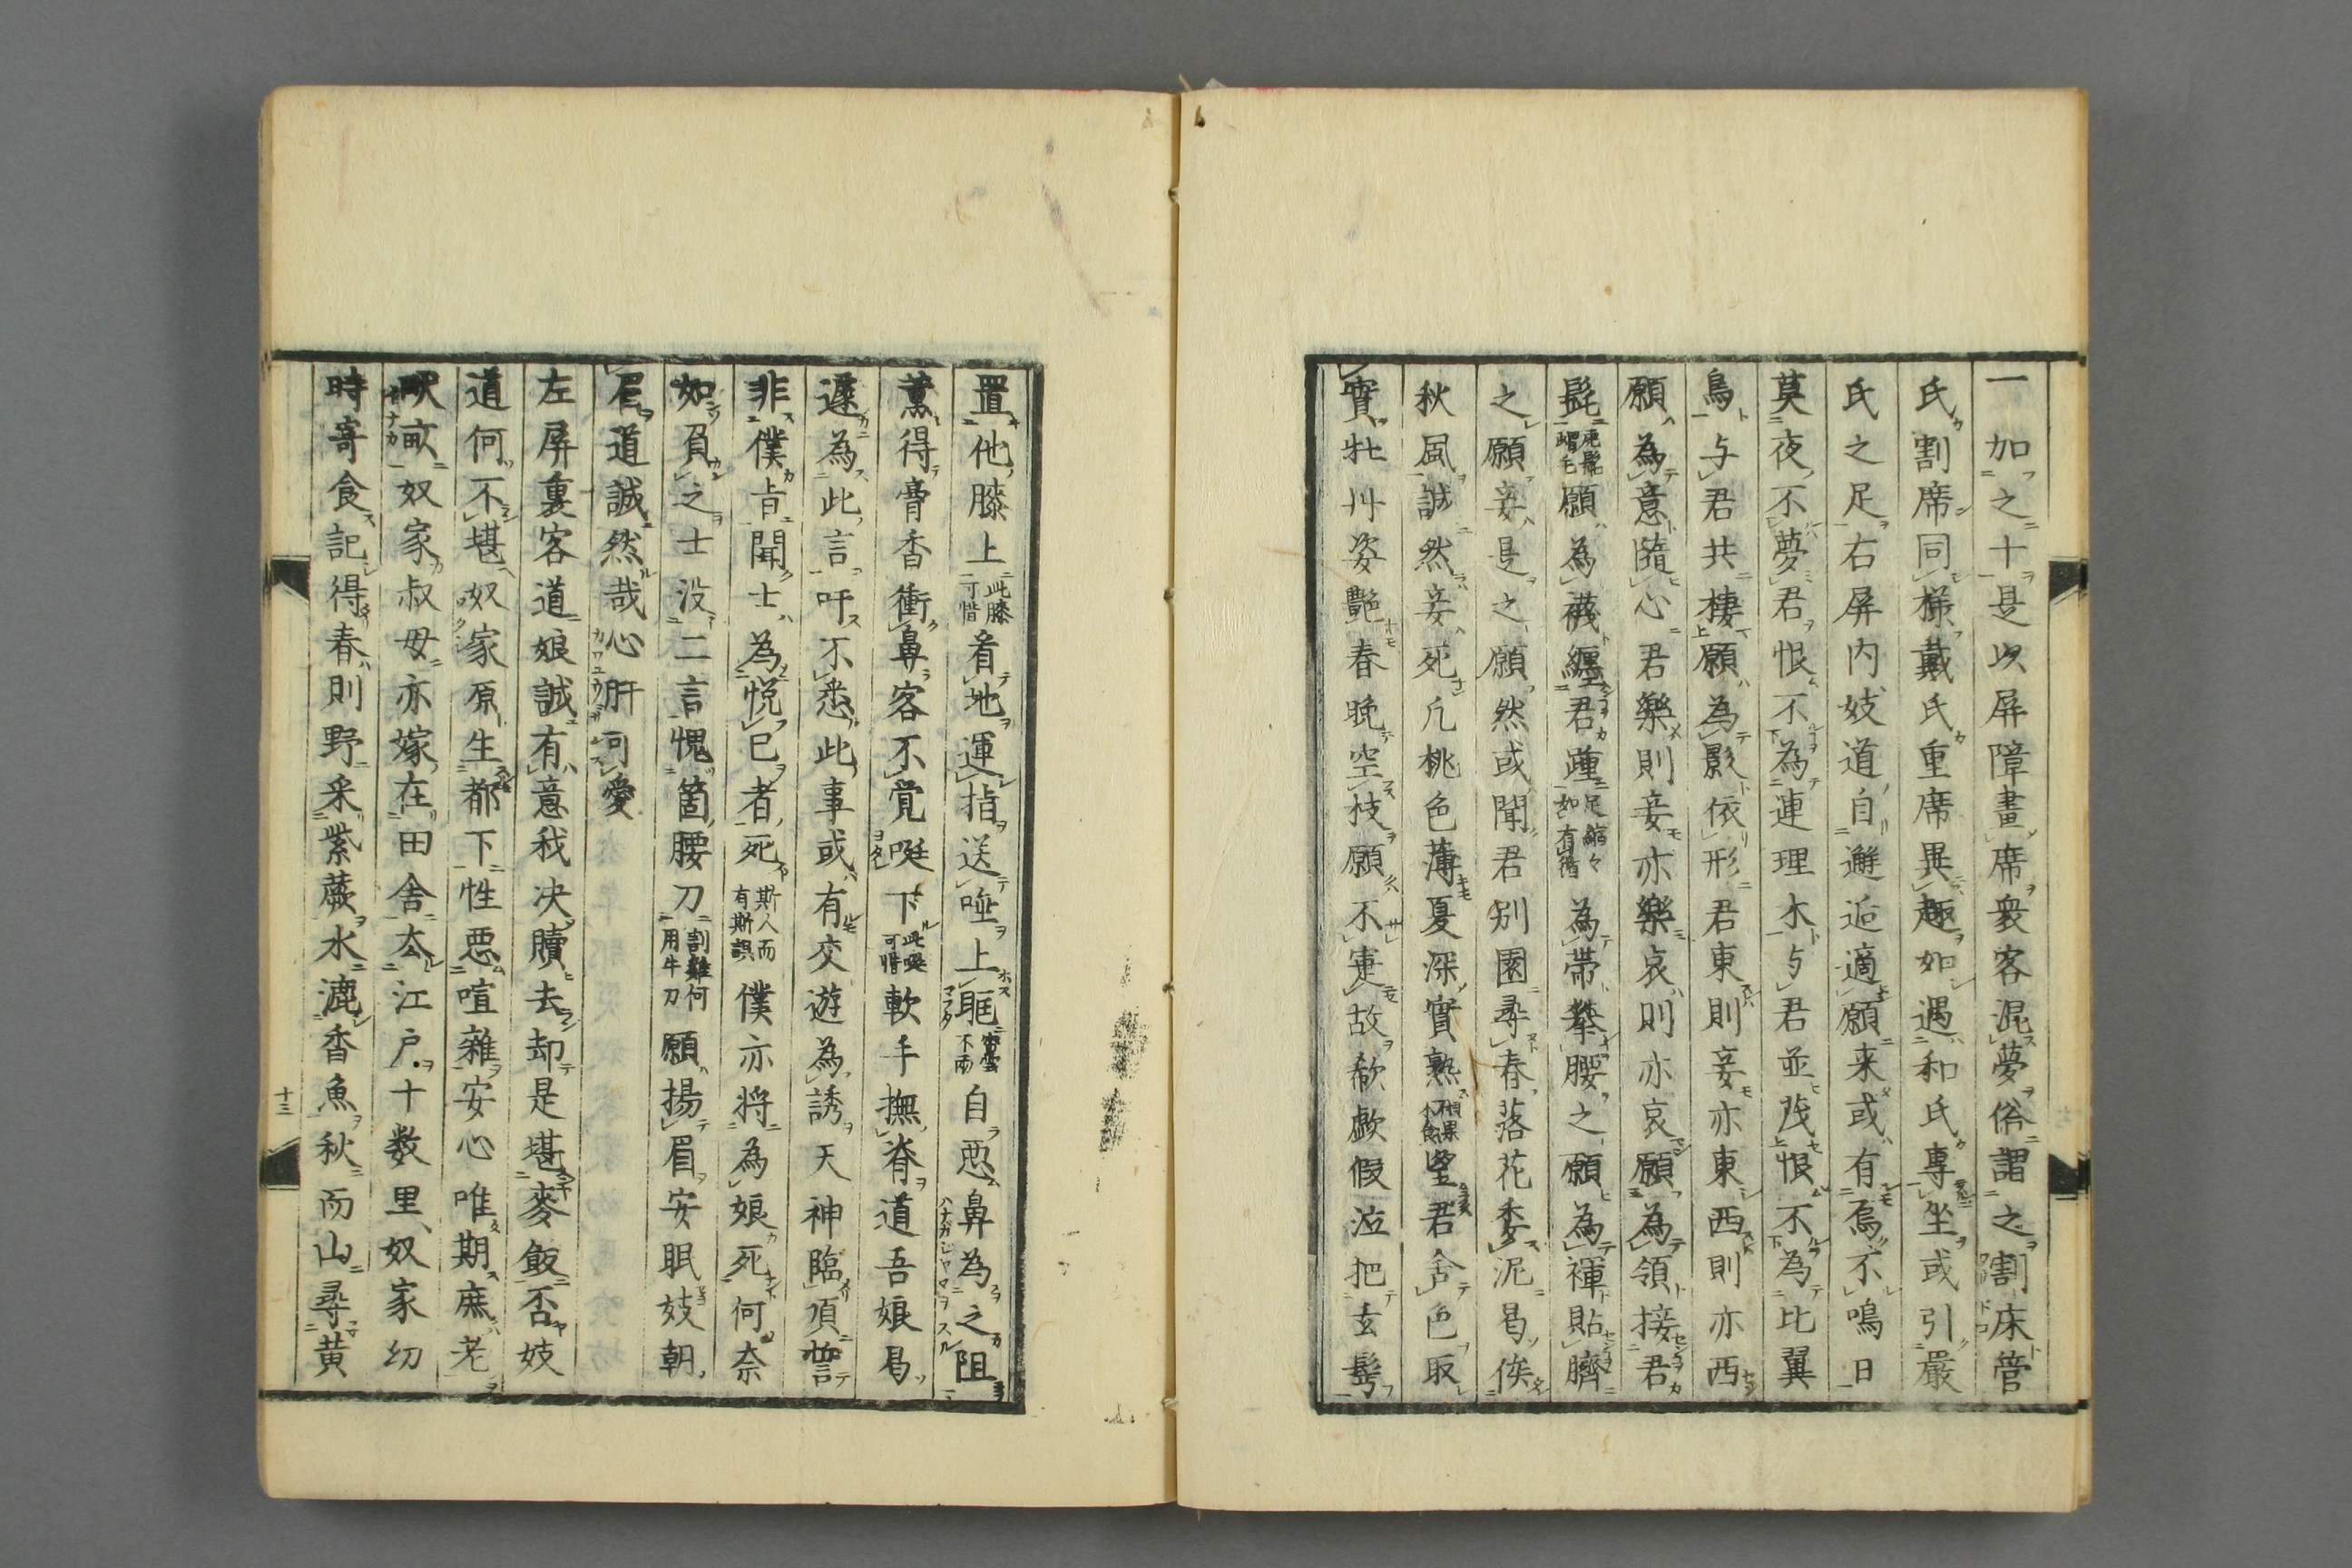 一加之十是以屏障畫席衆客混夢俗謂之割床管
氏割席同樣戴氏重席異趣如遇和氏專坐或引嚴
氏之足右屏内妓道自邂逅適願来或有烏不鳴日
莫夜不夢君恨不為連理木与君並茂恨不為比翼
鳥与君共棲願為影依形君東則妾亦東西則亦西
願為意隨心君樂則妾亦樂哀則亦哀願為領接君
髭願為襪纏君踵足縮々如有循為帶攀腰之願為褌貼臍
之願妾是之願然或聞君別園尋春落花委泥曷俟
秋風誠然妾死凢桃色薄夏深實熟望君舍色取
實牡丱姿艶春晩空枝願不寔故欷歔假泣把玄髩
置他膝上此膝可惜看地運指送唾上眶密雲不雨自惡鼻為之阻
薰得膏香衝鼻客不覚唌下此唌可惜軟手撫脊道吾娘曷
遽為此言吁不悉此事或有交遊為誘天神臨頂誓
非僕㫖聞士為悦已者死斯人而有斯誤僕亦将為娘死何奈
如負之士没二言愧箇腰刀割雞何用牛刀願揚眉安眠妓朝
眉道誠然哉心肝可愛
左屏裏客道娘誠有意我决贖去却是堪麥飯否妓
道何不堪奴家原生都下性惡喧雜安心唯期庶老
畎畝奴家叔母亦嫁在田舎厺江戸十数里奴家幼
時寄食記得春則野采紫蕨水漉香魚秋而山尋黄
十三